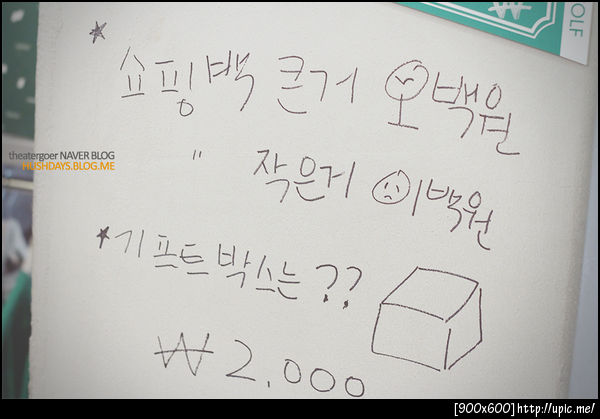 ₩
OLF
* 쇼핑백 큰거 오백원
theatergoer NAVER BLOG
HUSHDAYS.BLOG.ME
" 작은거 이백원
* 기프트 박스는 ??
₩ 2,000
[900x600] http://upic.me/